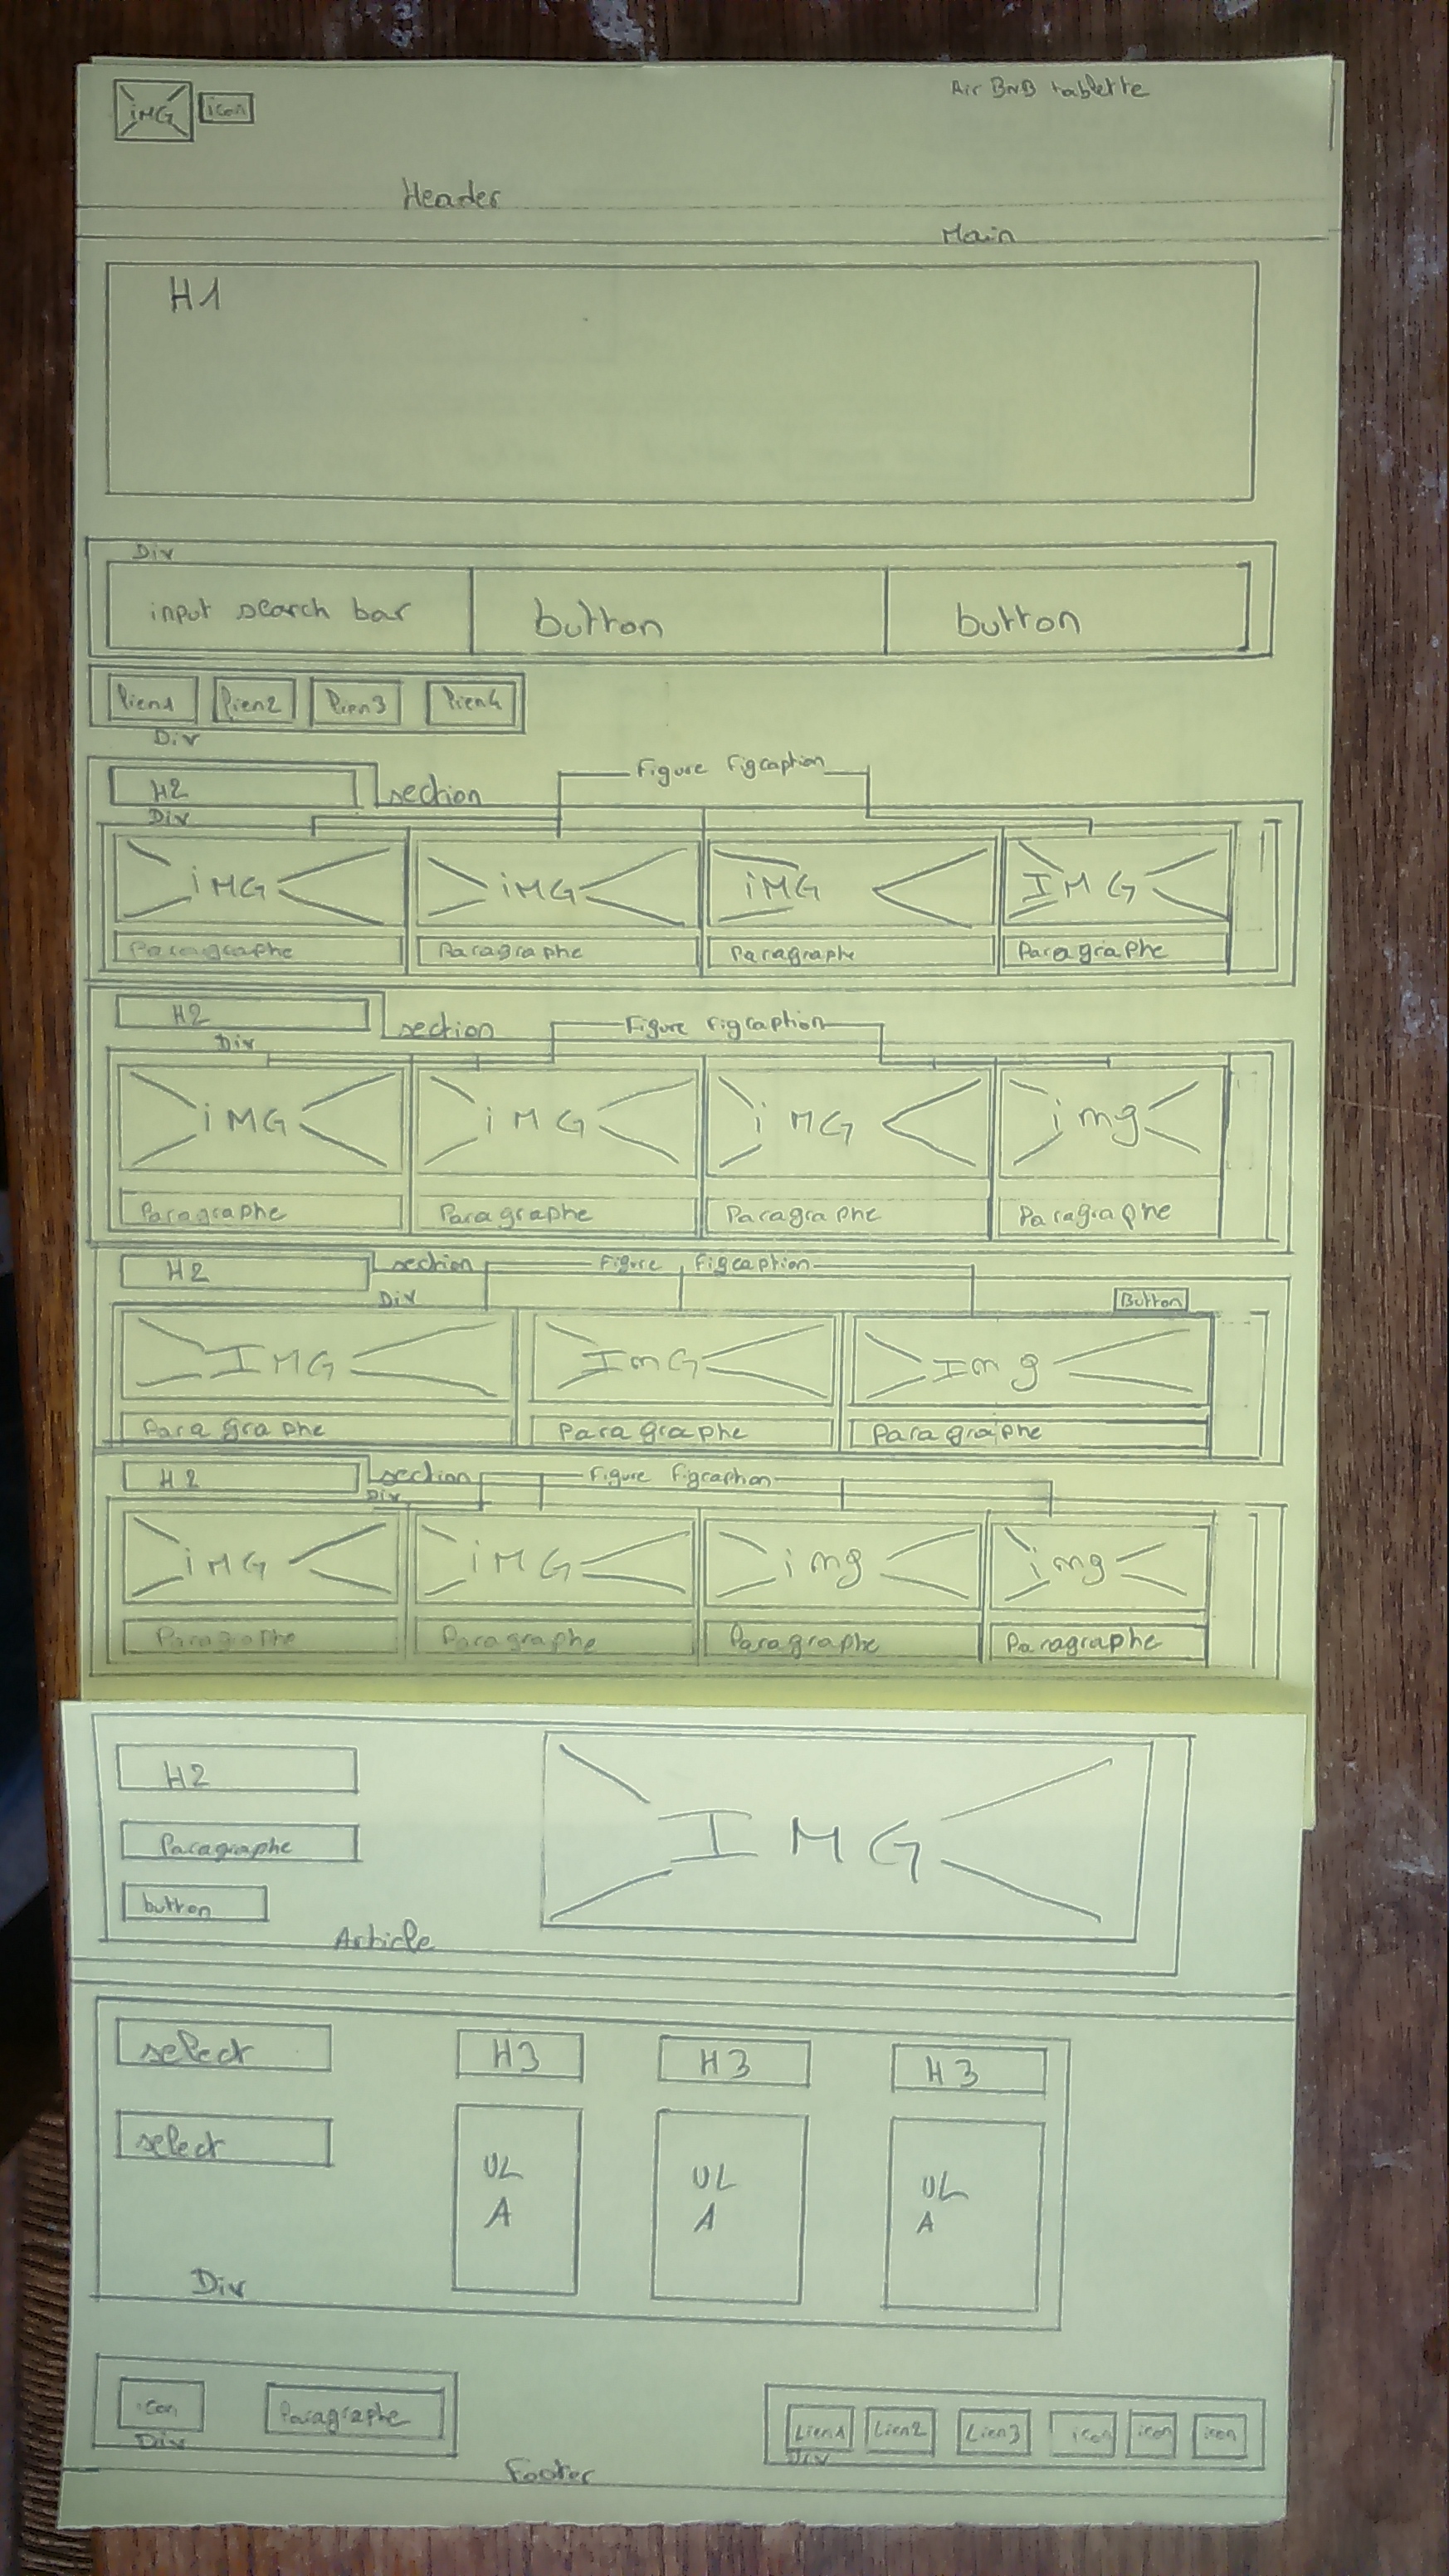 Air BNB tablette
iMG icon
Header
Main
H1
Div
input search bar button button
lien1 lien2 lien3 lien4
Div
Figure Figcaption
H2 section
Div
iMG iMG iMG IMG
Paragraphe Paragraphe Paragraphe Paragraphe
H2 section Figure Figcaption
Div
iMG iMG iMG img
Paragraphe Paragraphe Paragraphe Paragraphe
H2 section Figure Figcaption
Div Button
IMG ImG Img
Paragraphe Paragraphe Paragraphe
H2 section Figure Figcaption
Div
iMG iMG img img
Paragraphe Paragraphe Paragraphe Paragraphe
H2
Paragraphe IMG
button
Article
select H3 H3 H3
select
UL UL UL
A A A
Div
icon Paragraphe
Div
Lien1 Lien2 Lien3 icon icon icon
Div
Footer